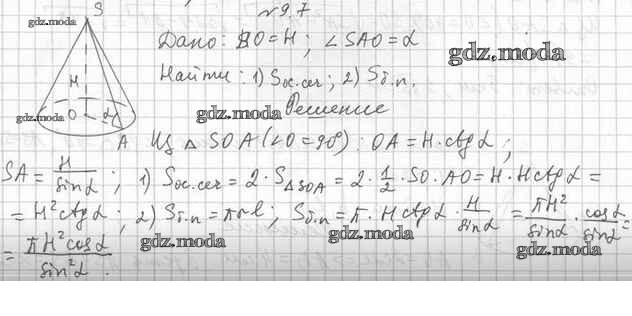 №9.7
S
gdz.moda
Дано: SO = H; ∠SAO = α
gdz.moda
Найти: 1) Sос.сеч; 2) Sб.п.
H
O
α
A
gdz.moda
gdz.moda
Решение
Из △SOA (∠O = 90°): OA = H·ctg α;
SA = H/sin α; 1) Sос.сеч = 2·S△SOA = 2·1/2·SO·AO = H·H ctg α =
= H² ctg α; 2) Sб.п = πrl; Sб.п = π·H ctg α·H/sin α = πH²/sin α·cos α/sin α =
gdz.moda
gdz.moda
gdz.moda
= πH² cos α/sin² α.